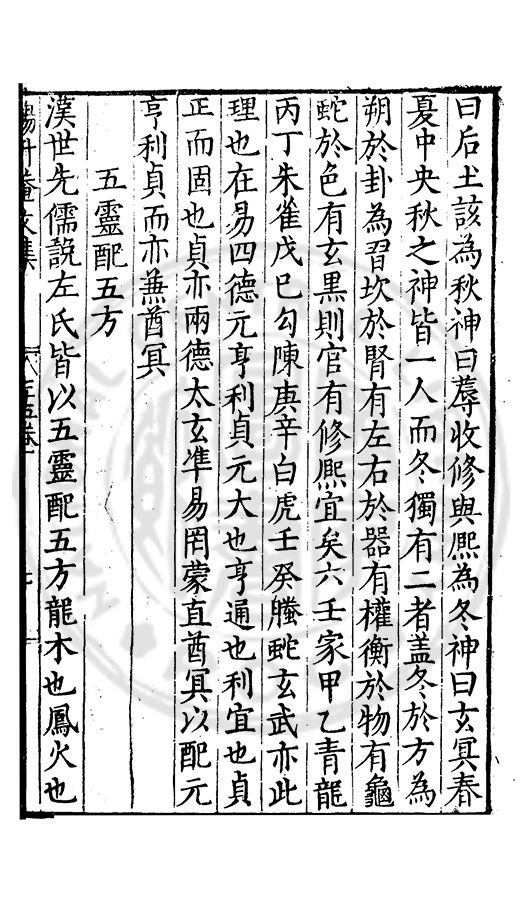 曰后土該為秋神曰蓐收修與熈為冬神曰玄冥春
夏中央秋之神皆一人而冬獨有二者盖冬於方為
朔於卦為習坎於腎有左右於器有權衡於物有龜
蛇於色有玄黒則官有修熈宜矣六壬家甲乙青龍
丙丁朱雀戊巳勾陳庚辛白虎壬癸螣蛇玄武亦此
理也在易四德元亨利貞元大也亨通也利宜也貞
正而固也貞亦兩德太玄凖易罔蒙直酋冥以配元
亨利貞而亦兼酋冥
五靈配五方
漢世先儒説左氏皆以五靈配五方龍木也鳳火也